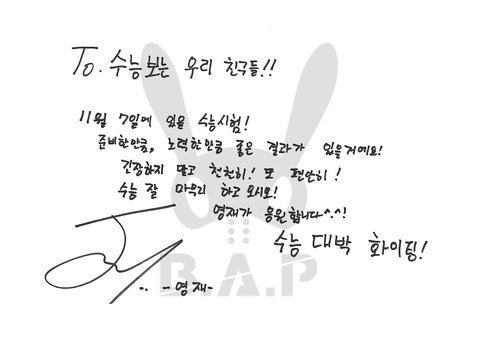 To. 수능보는 우리 친구들!!
11월 7일에 있을 수능시험!
준비한만큼, 노력한만큼 좋은 결과가 있을거예요!
긴장하지 말고 천천히! 또 편안히!
수능 잘 마무리 하고 오시오!
영재가 응원합니다^.^!
수능 대박 화이팅!
B.A.P
-영재-